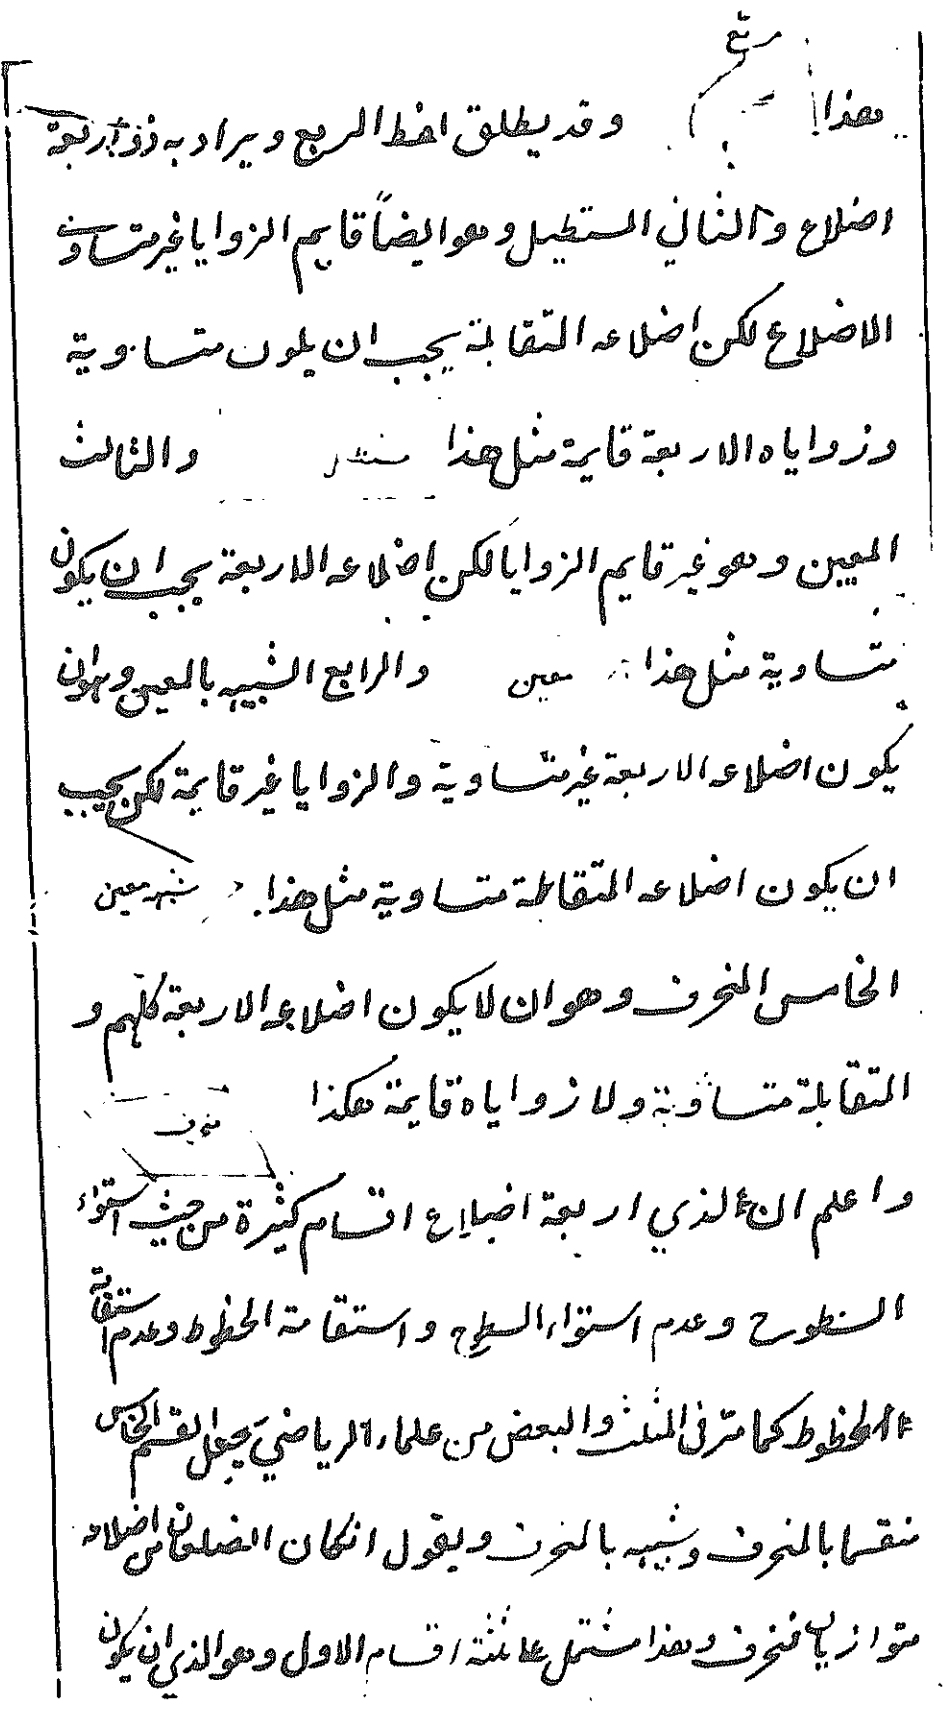 مربع
هذا وقد يطلق لفظ المربع ويراد به ذو اربعة
اضلاع والثاني المستطيل وهو ايضاً قايم الزوايا غير متساوى
الاضلاع لكن اضلاعه المتقابلة يجب ان يكون متساوية
وزواياه الاربعة قايمة مثل هذا والثالث
المعين وهو غير قايم الزوايا لكن اضلاعه الاربعة يجب ان يكون
متساوية مثل هذا معين والرابع الشبيه بالمعين وهو ان
يكون اضلاعه الاربعة غير متساوية والزوايا غير قايمة لكن يجب
ان يكون اضلاعه المتقابلة متساوية مثل هذا شبه معين
الخامس المنحرف وهو ان لا يكون اضلاعه الاربعة كلهم و
المتقابلة متساوية ولا زواياه قايمة هكذا
منحرف
واعلم ان الذي اربعة اضلاع اقسام كثيرة من حيث استواء
السطوح وعدم استواء السطوح واستقامة الخطوط وعدم استقامة
الخطوط كما مرّ في المثلث والبعض من علماء الرياضي يجعل القسم الخامس
منقسما بالمنحرف وشبيه بالمنحرف ويقول ان كان الضلعان من اضلاعه
متوازيان منحرف وهذا مشتمل على ثلثة اقسام الاول وهو الذي ان يكون